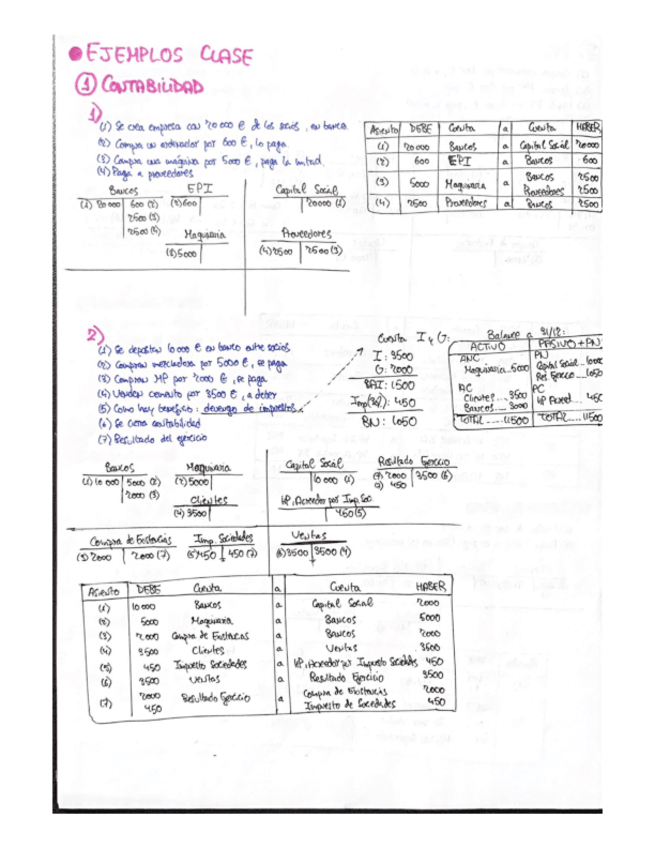 EJEMPLOS CLASE
① CONTABILIDAD
1)
(1) Se crea empresa con 20000 € de los socios, en banco.
(2) Compra un ordenador por 600 €, lo paga.
(3) Compra una máquina por 5000 €, paga la mitad.
(4) Paga a proveedores
Asiento DEBE Cuenta a Cuenta HABER
(1) 20000 Bancos a Capital Social 20000
(2) 600 EPI a Bancos 600
(3) 5000 Maquinaria a Bancos 2500
Proveedores 2500
(4) 2500 Proveedores a Bancos 2500
Bancos EPI Capital Social
(1) 20000 600 (2) (2) 600 20000 (1)
2500 (3)
2500 (4) Maquinaria Proveedores
(3) 5000 (4) 2500 2500 (3)
2)
(1) Se depositan 10000 € en banco entre socios
(2) Compran por 5000 €, se paga
(3) Compran MP por 2000 €, se paga
(4) Venden por 3500 €, a deber
(5) Como hay beneficio: devengo de impuestos
(6) Se cierra contabilidad
(7) Resultado del ejercicio
Cuenta I y G:
I: 3500
G: 2000
BAI: 1500
Imp(30%): 450
BN: 1050
Balance a 31/12:
ACTIVO PASIVO + PN
ANC PN
Maquinaria...5000 Capital Social...10000
Res Ejercicio...1050
AC PC
Clientes...3500 HP Acreed...450
Bancos...3000
TOTAL......11500 TOTAL......11500
Bancos Maquinaria Capital Social Resultado Ejercicio
(1) 10 000 5000 (2) (2) 5000 10 000 (1) (7) 2000 3500 (6)
2000 (3) 450
Clientes HP. Acreedor por Imp. Soc.
(4) 3500 450 (5)
Compra de Existencias Imp. Sociedades Ventas
(3) 2000 2000 (7) (5) 450 450 (7) (6) 3500 3500 (4)
Asiento DEBE Cuenta a Cuenta HABER
(1) 10 000 Bancos a Capital Social
(2) 5000 Maquinaria a Bancos 5000
(3) 2000 Compra de Existencias a Bancos 2000
(4) 3500 Clientes a Ventas 3500
(5) 450 Impuesto Sociedades a HP. Acreedor por Impuesto Sociedades 450
(6) 3500 Ventas a Resultado Ejercicio 3500
(7) 2000 Resultado Ejercicio a Compra de Existencias 2000
450 Impuesto de Sociedades 450